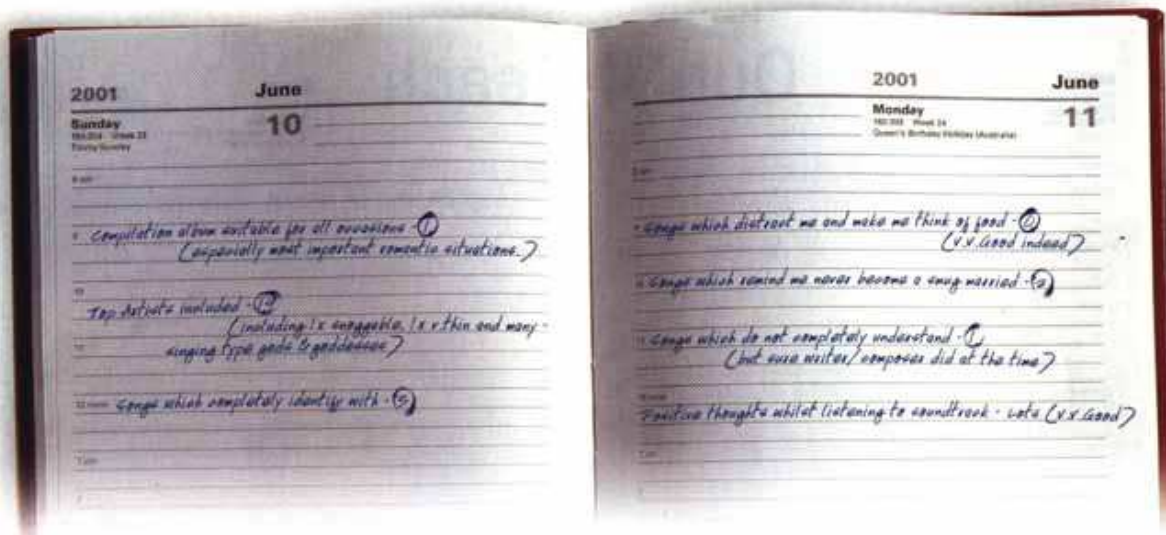 2001 June
Sunday 10
Trinity Sunday
compilation album suitable for all occasions - 1
(especially most important romantic situations.)
10
Top Artists included -
(including 1x snoggable, 1x v.thin and many -
singing type gods & goddesses)
12 noon songs which completely identify with - 5
1 pm
2001 June
Monday 11
Week 24
Queen's Birthday Holiday (Australia)
songs which distract me and make me think of food - 0
(v.v.Good indeed)
songs which remind me never become a smug married - 2
11 songs which do not completely understand - 1
(but sure writer/composer did at the time)
Positive thoughts whilst listening to soundtrack - Lots (v.v.Good)